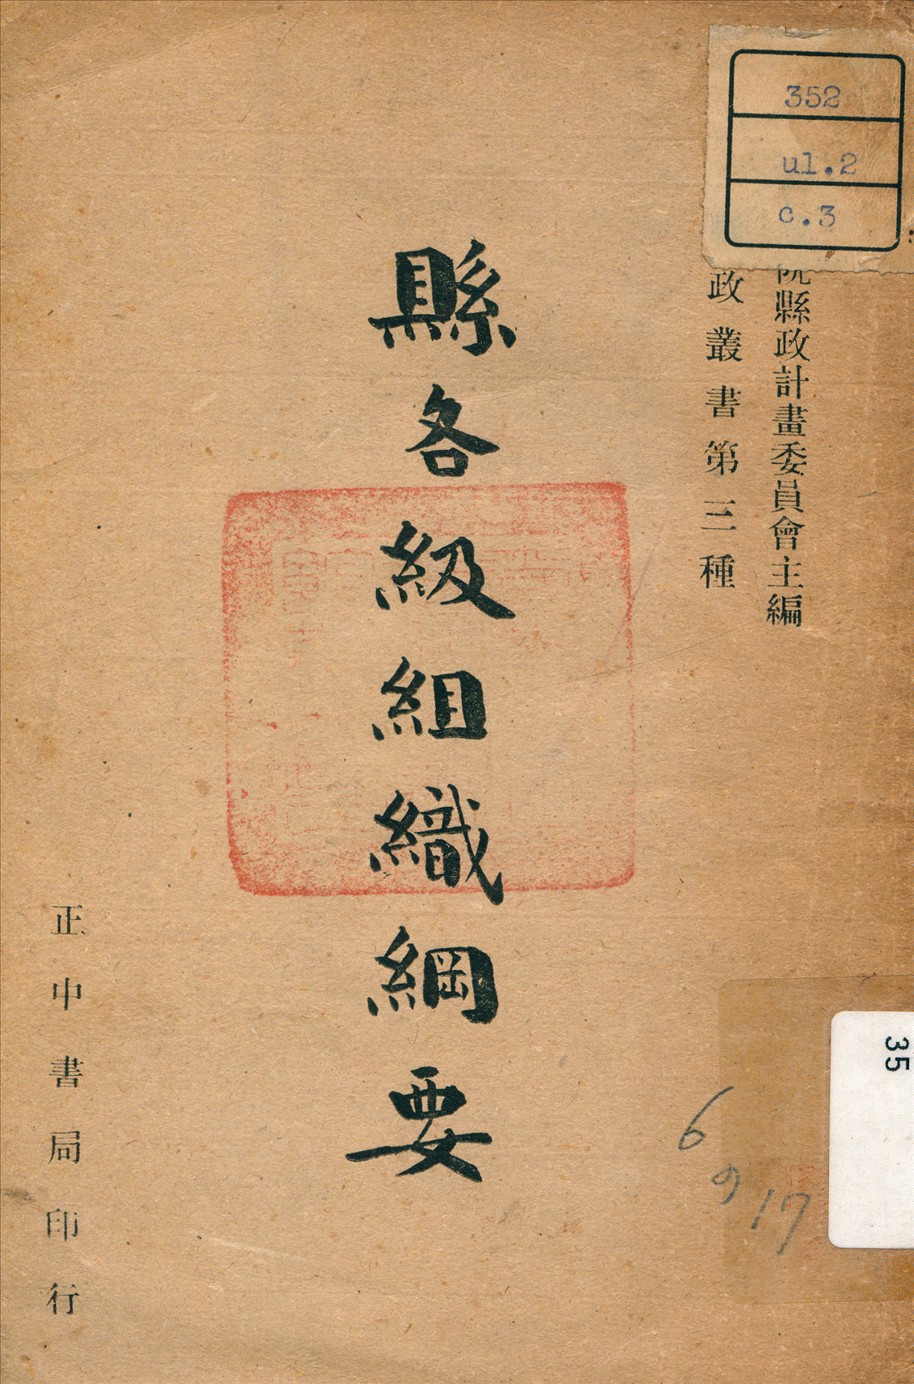 352
ul.2
c.3
院縣政計畫委員會主編
政叢書第三種
縣各級組織綱要
正中書局印行
35
6
17